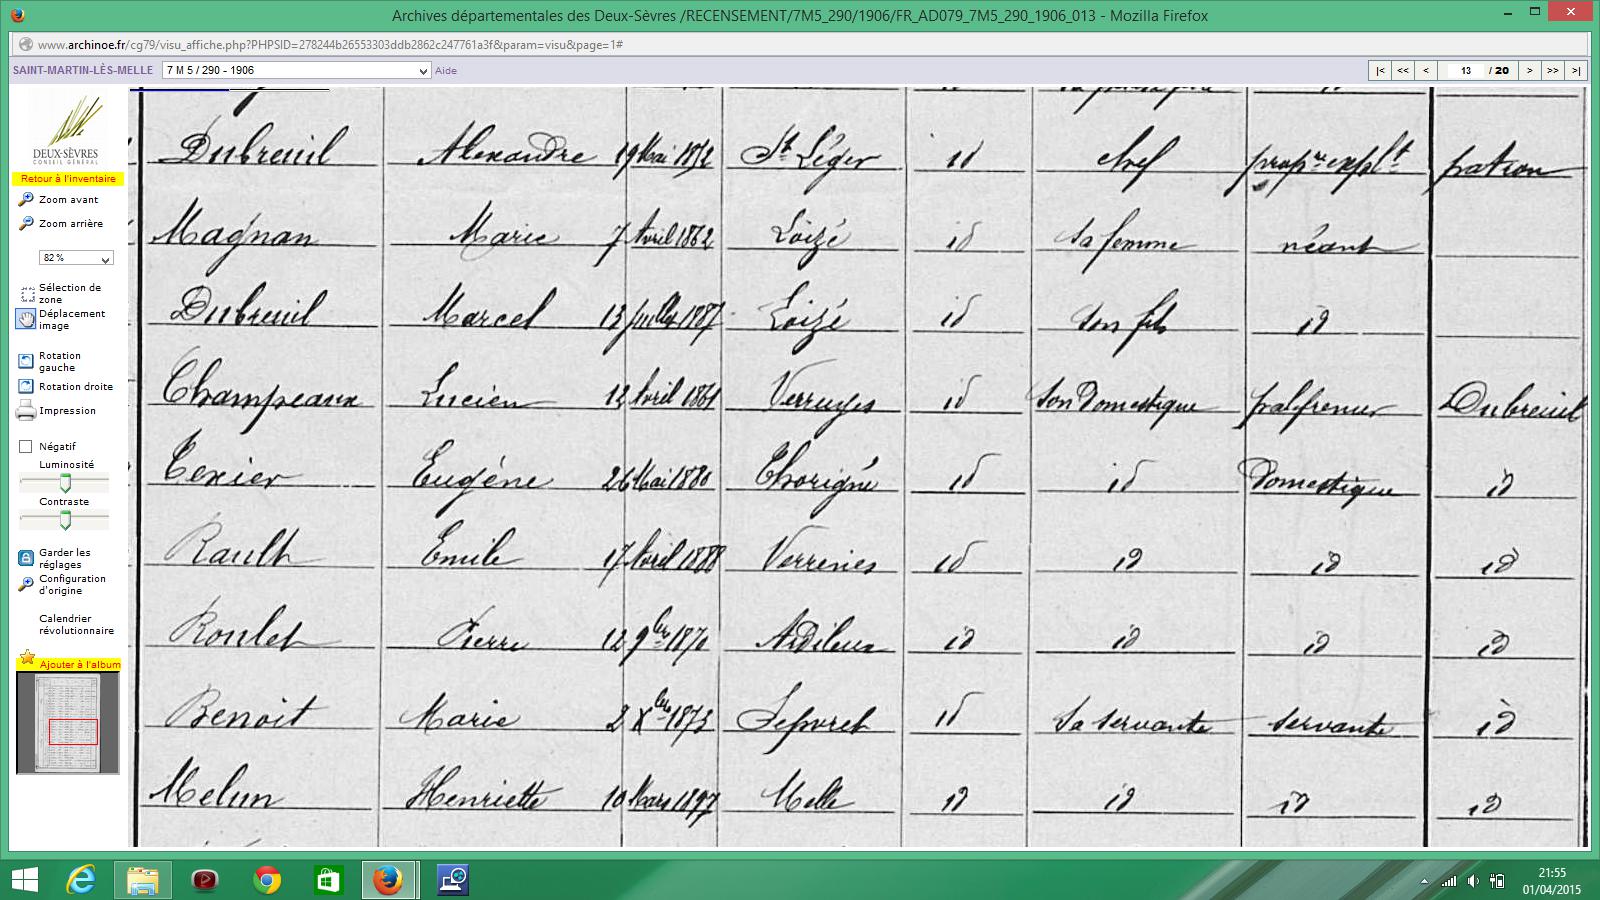 Archives départementales des Deux-Sèvres /RECENSEMENT/7M5_290/1906/FR_AD079_7M5_290_1906_013 - Mozilla Firefox
www.archinoe.fr/cg79/visu_affiche.php?PHPSID=278244b26553303ddb2862c247761a3f&param=visu&page=1#
SAINT-MARTIN-LÈS-MELLE 7 M 5 / 290 - 1906 Aide |< << < 13 / 20 > >> >|
DEUX-SÈVRES
CONSEIL GÉNÉRAL
Retour à l'inventaire
Zoom avant
Zoom arrière
82 %
Sélection de
zone
Déplacement
image
Rotation
gauche
Rotation droite
Impression
Négatif
Luminosité
Contraste
Garder les
réglages
Configuration
d'origine
Calendrier
révolutionnaire
Ajouter à l'album
Dubreuil Alexandre 19 Mai 1872 St Léger id chef propre explt patron
Magnan Marie 7 Avril 1862 Loizé id sa femme néant
Dubreuil Marcel 13 juillet 1887 Loizé id son fils id
Champeaux Lucien 12 Avril 1861 Verruyes id son Domestique palefrenier Dubreuil
Texier Eugène 26 Mai 1880 Thorigné id id Domestique id
Rault Emile 17 Avril 1888 Verrines id id id id
Roulet Pierre 12 9bre 1870 Ardilleux id id id id
Benoit Marie 2 Xbre 1873 Sepvret id sa servante servante id
Melun Henriette 10 Mars 1897 Melle id id id id
21:55
01/04/2015